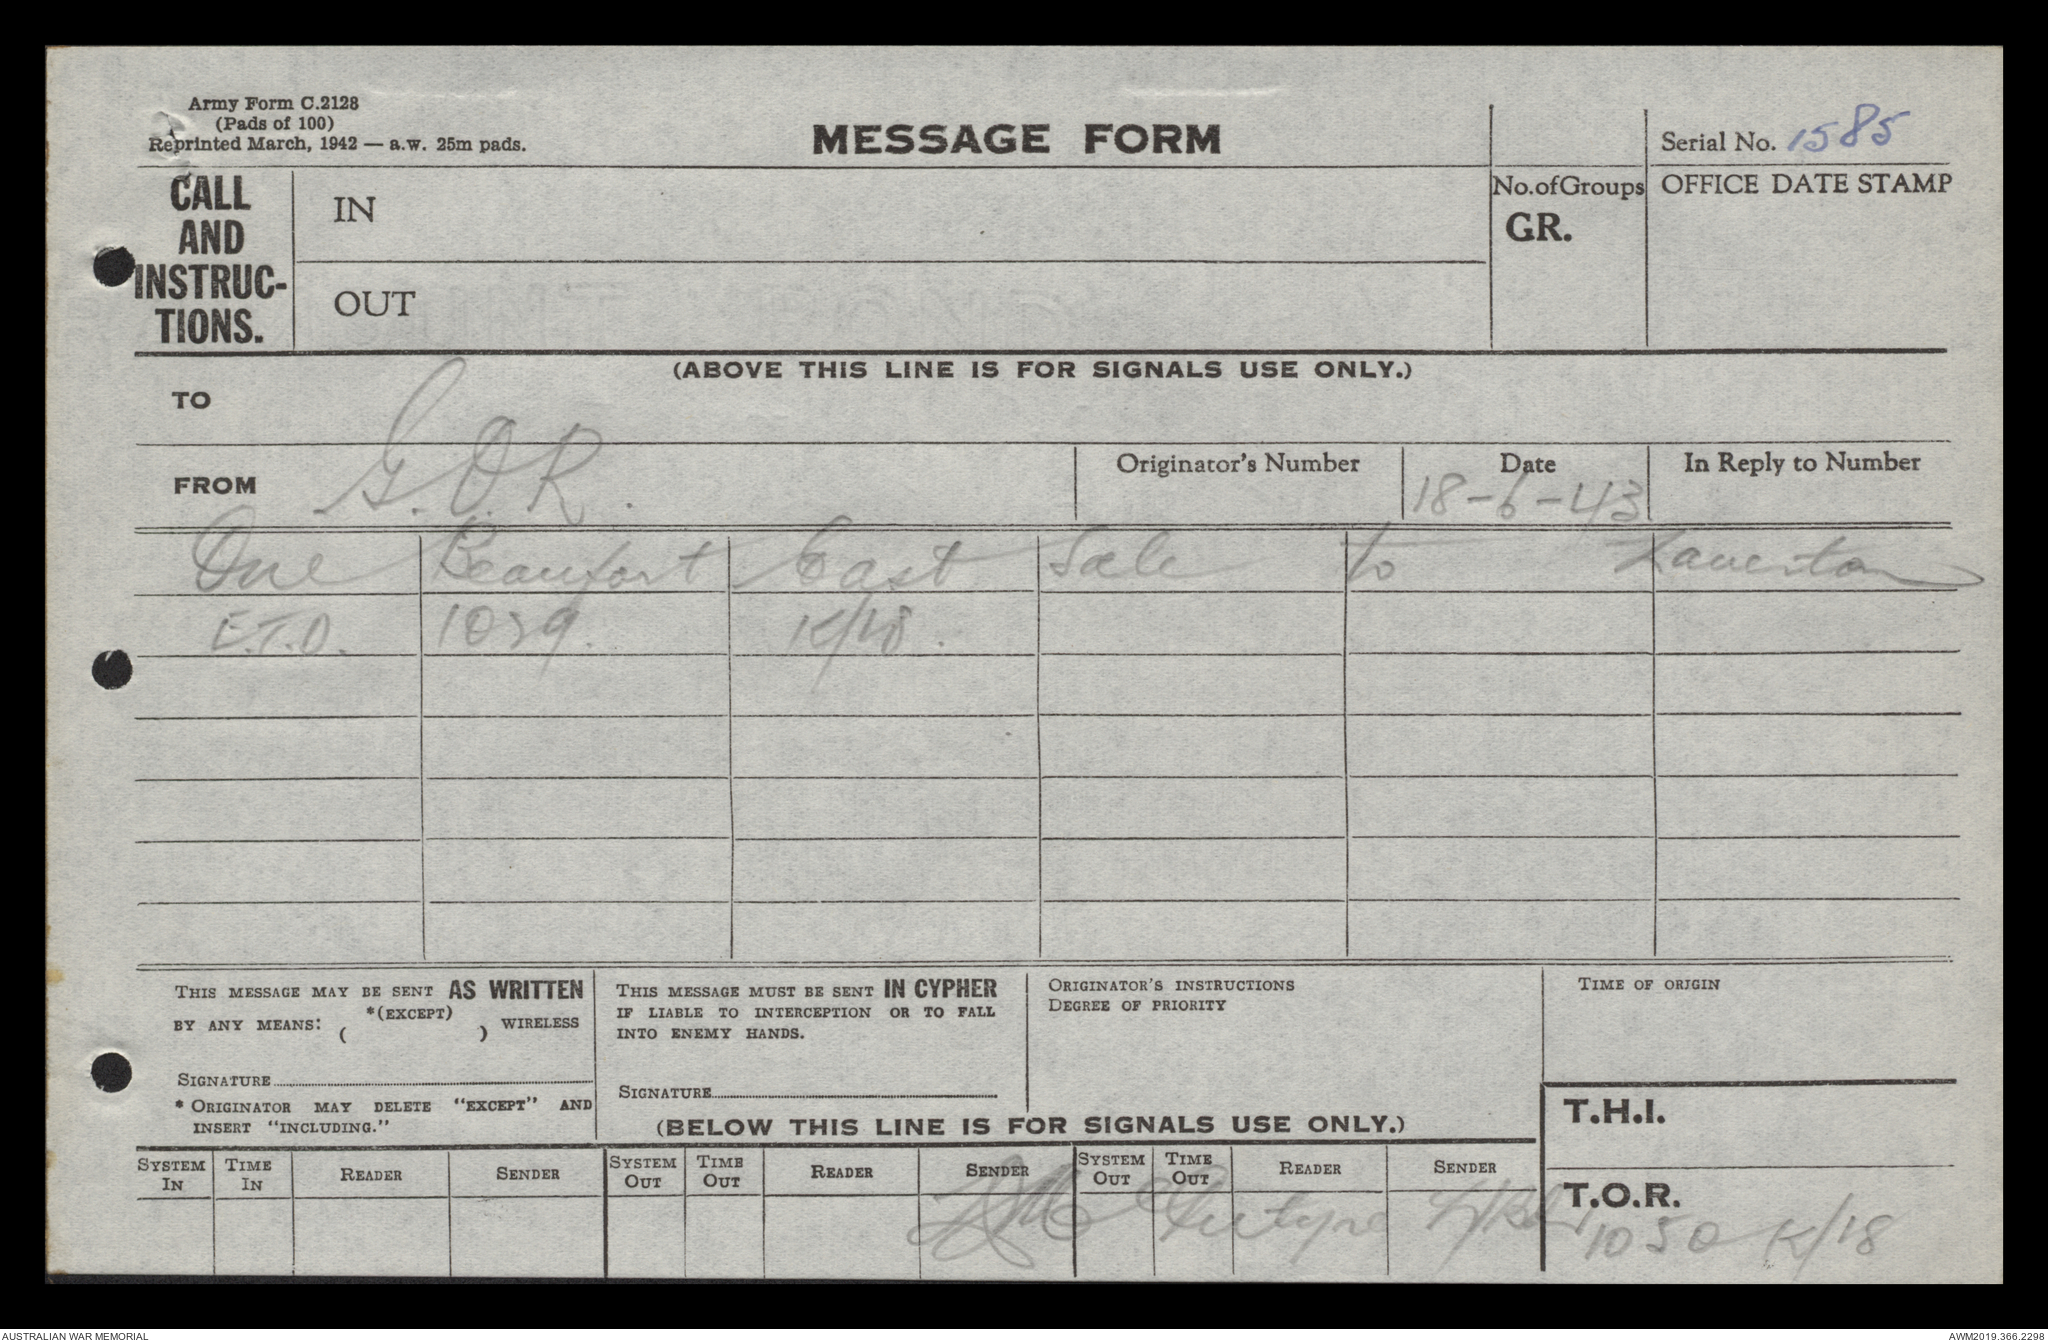 Army Form C.2128
(Pads of 100)
Reprinted March, 1942 — a.w. 25m pads.
MESSAGE FORM
Serial No. 1585
CALL AND INSTRUC-TIONS.
IN
OUT
No.ofGroups
GR.
OFFICE DATE STAMP
(ABOVE THIS LINE IS FOR SIGNALS USE ONLY.)
TO
FROM G.O.R.
Originator's Number
Date 18-6-43
In Reply to Number
One Beaufort East Sale to Laverton
E.T.D. 1039. K/18.
THIS MESSAGE MAY BE SENT AS WRITTEN
BY ANY MEANS: *(EXCEPT) ( ) WIRELESS
SIGNATURE
* ORIGINATOR MAY DELETE "EXCEPT" AND
INSERT "INCLUDING."
THIS MESSAGE MUST BE SENT IN CYPHER
IF LIABLE TO INTERCEPTION OR TO FALL
INTO ENEMY HANDS.
SIGNATURE
ORIGINATOR'S INSTRUCTIONS
DEGREE OF PRIORITY
TIME OF ORIGIN
(BELOW THIS LINE IS FOR SIGNALS USE ONLY.)
T.H.I.
SYSTEM IN TIME IN READER SENDER SYSTEM OUT TIME OUT READER SENDER SYSTEM OUT TIME OUT READER SENDER
T.O.R.
1050 K/18
AUSTRALIAN WAR MEMORIAL
AWM2019.366.2298